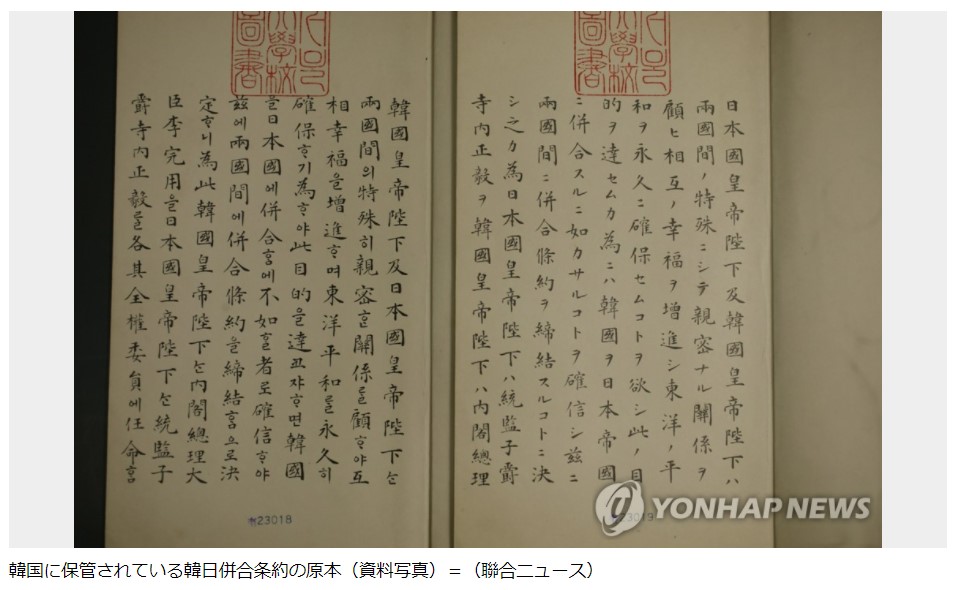 日本國皇帝陛下及韓國皇帝陛下ハ
兩國間ノ特殊ニシテ親密ナル關係ヲ
顧ヒ相互ノ幸福ヲ增進シ東洋ノ平
和ヲ永久ニ確保セムコトヲ欲シ此ノ目
的ヲ達セムカ為ニハ韓國ヲ日本帝國
ニ併合スルニ如カサルコトヲ確信シ茲ニ
兩國間ニ併合條約ヲ締結スルコトニ決
シ之カ為日本國皇帝陛下ハ統監子爵
寺內正毅ヲ韓國皇帝陛下ハ內閣總理
韓國皇帝陛下及日本國皇帝陛下ᄂᆞᆫ
兩國間의特殊히親密ᄒᆞᆫ關係를顧ᄒᆞ야互
相幸福을增進ᄒᆞ며東洋平和를永久히
確保ᄒᆞ기為ᄒᆞ야此目的을達코쟈ᄒᆞ면韓國
을日本國에併合ᄒᆞᆷ에不如ᄒᆞᆫ者로確信ᄒᆞ야
玆에兩國間에併合條約을締結ᄒᆞᆷ으로決
定ᄒᆞ니為此韓國皇帝陛下ᄂᆞᆫ內閣總理大
臣李完用을日本國皇帝陛下ᄂᆞᆫ統監子
爵寺內正毅를各其全權委員에任命ᄒᆞᆷ
23018
YONHAP NEWS
韓国に保管されている韓日併合条約の原本（資料写真）＝（聯合ニュース）